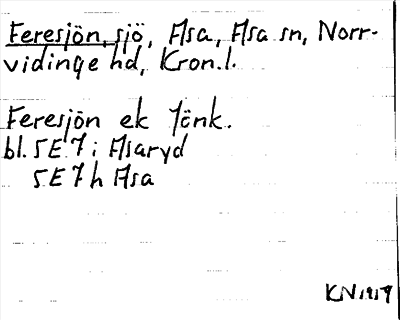 Feresjön, sjö, Asa, Asa sn, Norr-
vidinge hd, Kron.l.
Feresjön ek Jönk.
bl. 5E 7 i Asaryd
5E 7 h Asa